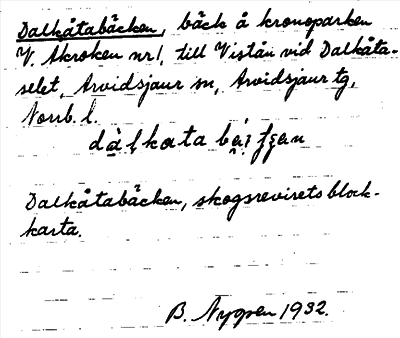 Dalkåtabäcken, bäck å kronoparken
V. Akroken nr 1, till Vistån vid Dalkåta-
selet, Arvidsjaur sn, Arvidsjaur tg,
Norrb. l.
Dalkåtabäcken, skogsrevirets block-
karta.
B. Nygren 1932.